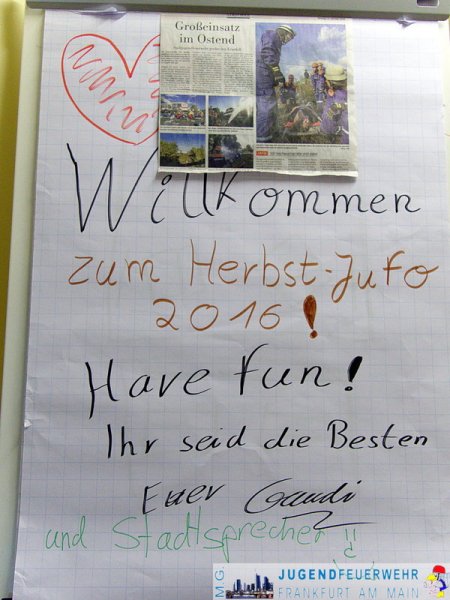 Großeinsatz
im Ostend
Willkommen
zum Herbst-Jufo
2016!
Have fun!
Ihr seid die Besten
Euer Gaudi
und Stadtsprecher
M.G.
JUGENDFEUERWEHR
FRANKFURT AM MAIN